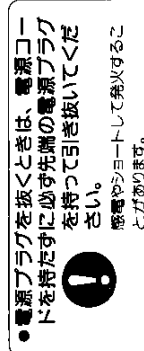 ●電源プラグを抜くときは、電源コー
ドを持たずに必ず先端の電源プラグ
を持って引き抜いてくだ
さい。
感電やショートして発火するこ
とがあります。